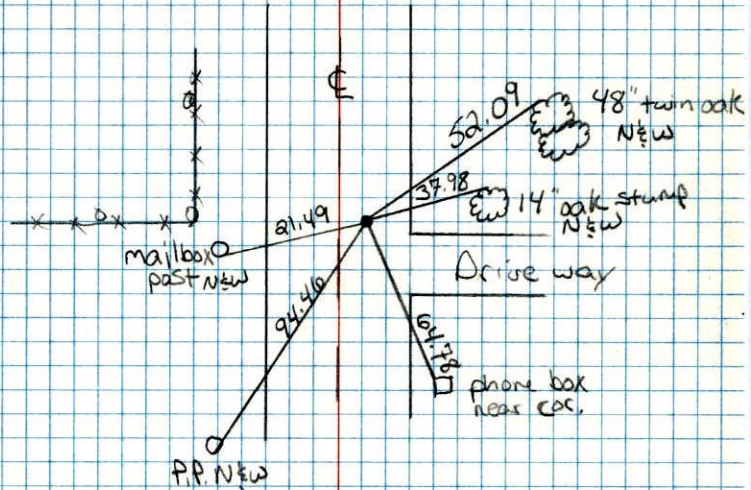 ℄
52.09
48" twin oak
N&W
37.98
14" oak stump
N&W
21.49
mailbox
post N&W
Drive way
94.46
64.78
phone box
near cor.
P.P. N&W